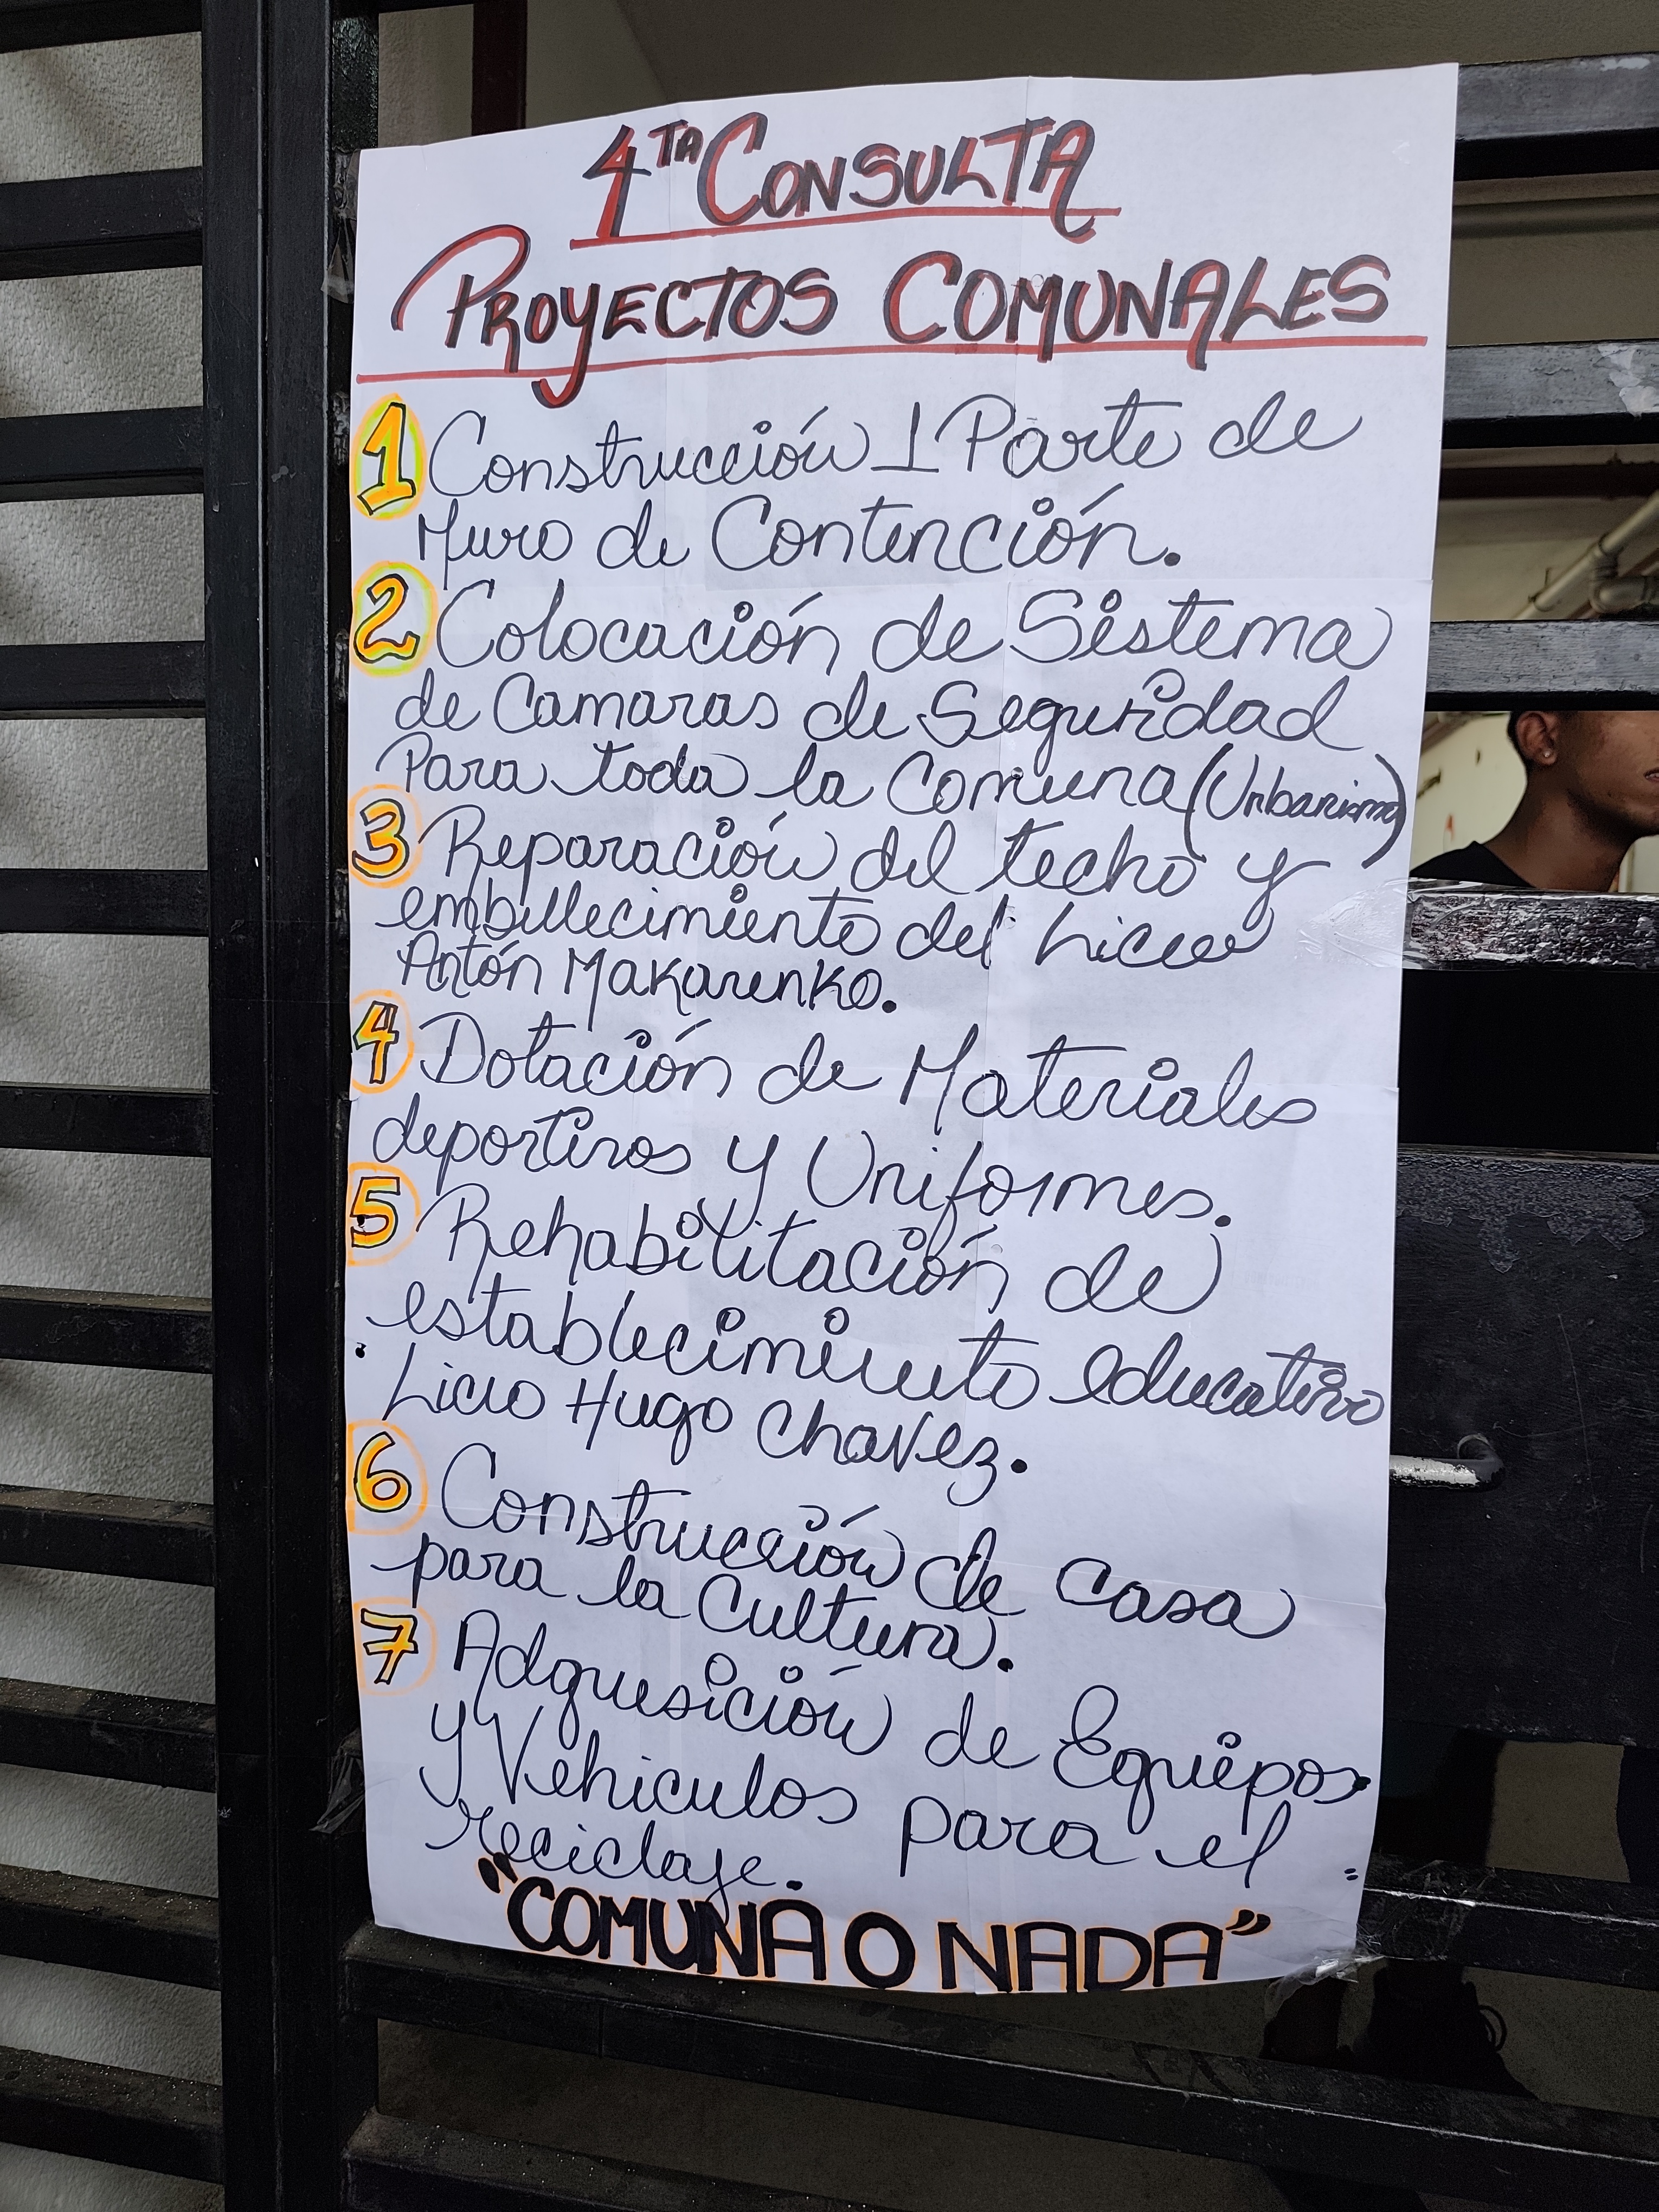 4TA CONSULTA
PROYECTOS COMUNALES
1 Construcción 1 Parte de
Muro de Contención.
2 Colocación de Sistema
de Camaras de Seguridad
Para toda la Comuna (Urbanismo)
3 Reparación del techo y
embellecimiento del Liceo
Antón Makarenko.
4 Dotación de Materiales
deportivos y Uniformes.
5 Rehabilitación de
establecimiento educativo
Liceo Hugo Chavez.
6 Construcción de Casa
para la Cultura.
7 Adquesición de Equipos
y Vehiculos para el
reciclaje.
"COMUNA O NADA"